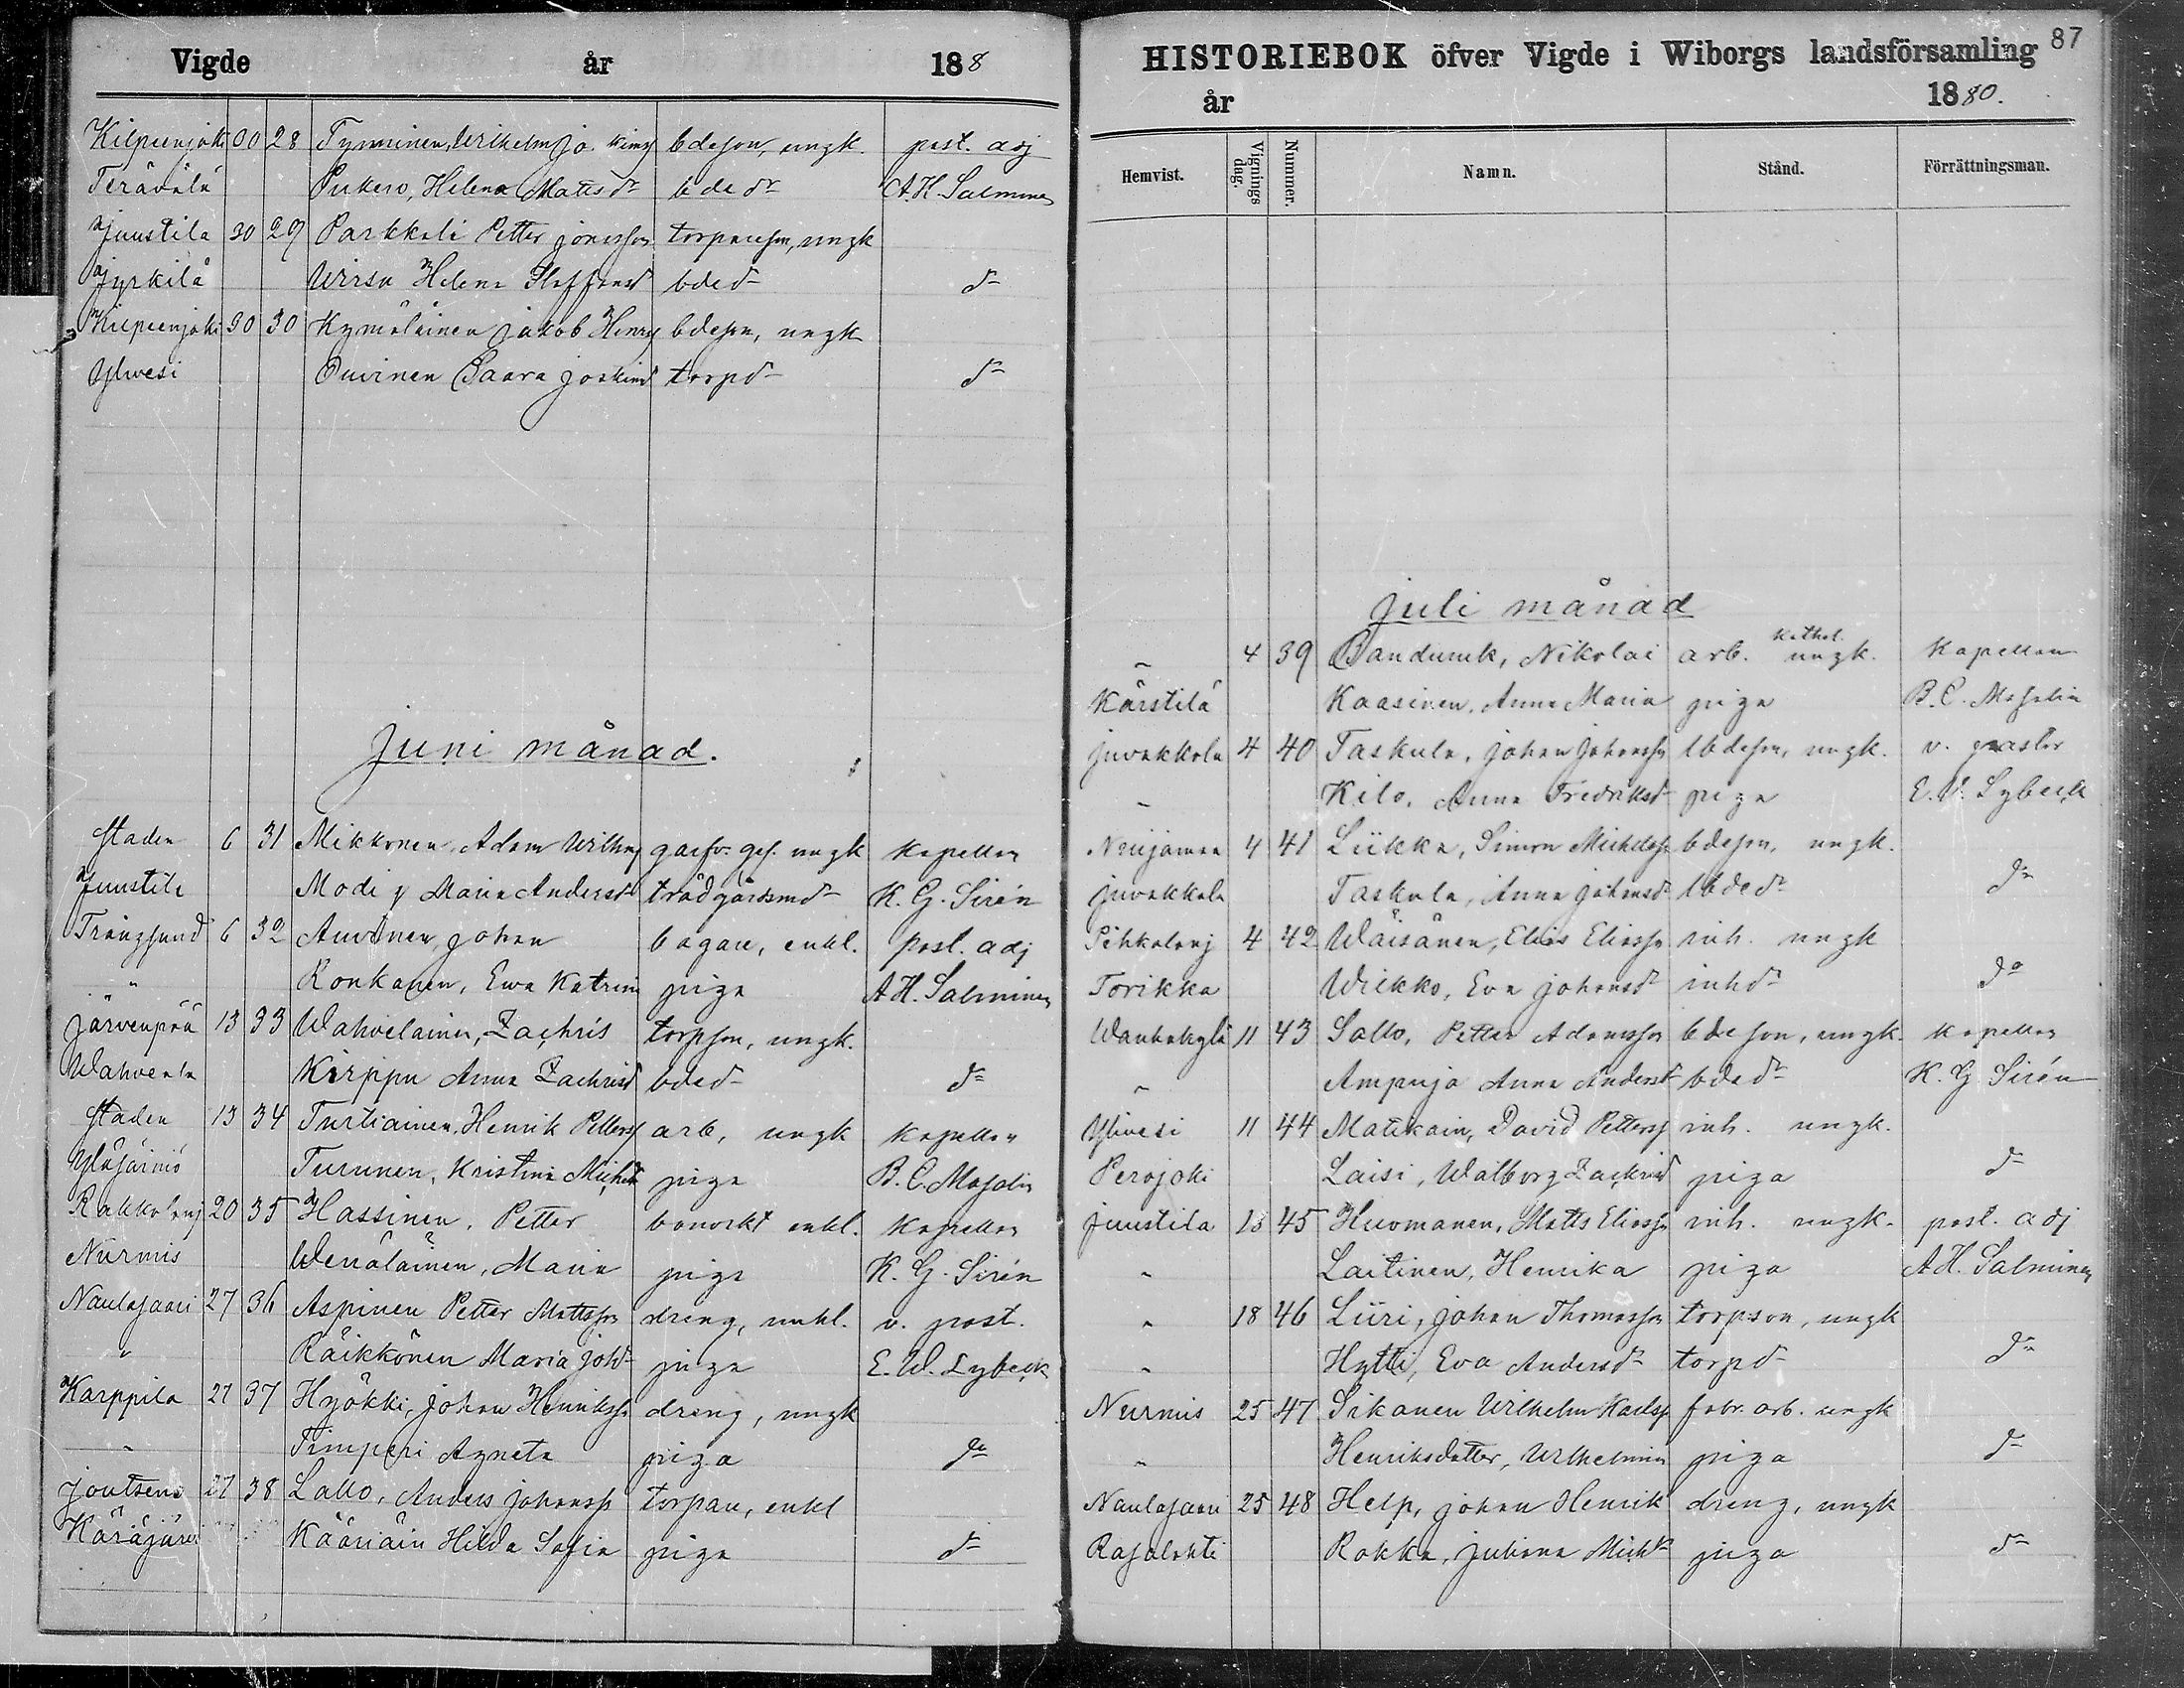 Vigde år 188
Kilpeenjoki 30 28 Tynninen, Wilhelm bdeson, ungk. past. adj
Terävälä Pukero, Helena Mattsdr bdedr A.H. Salminen
Juustila 30 29 Parkkali Petter Jönsson torpareson, ungk
Jyrkilä Wirsu Helena Staffansd bded dn
Kilpeenjoki 30 30 Kymäläinen Jakob Henrs bdeson, ungk
Ylivesi Ouvinen Saara Joakimsd torpd dn
Juni månad.
Staden 6 31 Mikkonen, Adam Wilhms garfv. ges. ungk kapellan
Juustila Modig Maria Andersdr trädgårdsmd K. G. Sirén
Trångsund 6 32 Auvinen, Johan bagare, enkl. past. adj
" Ronkanen, Ewa Katrin piga A H. Salminen
Järvenpää 13 33 Wahvelainen, Zachris torpson, ungk.
Wahvenla Kirppu Anna Zachrisd bded dn
Staden 13 34 Turtiainen, Henrik Petters arb, ungk kapellan
Yläsäiniö Turunen, Kristina Michelsd piga B. C. Masalin
Rakkolanj 20 35 Hassinen, Petter banvakt enkl. kapellan
Nurmis Wenäläinen, Maria piga K. G. Sirén
Naulasaari 27 36 Aspinen Petter Mattsson dreng, enkl. v. past.
" Räikkönen Maria Johd piga E. W. Lybeck
Karppila 27 37 Hyökki, Johan Henrikss dreng, ungk
" Timperi Agneta piga dn
Joutseno 27 38 Lallo, Anders Johanss torpare, enkl
Käräjärvi Kääriäin Hilda Sofia piga dn
87
HISTORIEBOK öfver Vigde i Wiborgs landsförsamling
år 1880.
Hemvist. Vignings dag. Nummer. Namn. Stånd. Förrättningsman.
Juli månad
kathol.
" 4 39 Bandurek, Nikolai arb. ungk. Kapellan
Kärstilä Kaasinen, Anna Maria piga B. C. Masalin
Juvakkola 4 40 Taskula, Johan Johanss lbdeson, ungk. v. pastor
" Kilo, Anna Fredriksd piga E. W. Lybeck
Nuijamaa 4 41 Liikka, Simon Michelss bdeson, ungk.
Juvakkala Taskula, Anna Johansd lbdedr dn
Pihkalanj 4 42 Wäisänen, Elias Eliass inh. ungk
Torikka Wilkko, Eva Johansdr inhdr do
Wanhakylä 11 43 Sallo, Petter Adamsson bdeson, ungk. kapellan
" Ampuja Anna Andersdr bdedr K. G Sirén
Ylivesi 11 44 Matikain, David Petterss inh. ungk.
Perojoki Laisi, Walborg Zachrisd piga dn
Juustila 18 45 Huomanen, Matts Eliass inh. ungk. past. adj
" Laitinen, Henrika piga A H. Salminen
" 18 46 Liiri, Johan Thomasson torpson, ungk
" Hytti, Eva Andersdr torpd dn
Nurmis 25 47 Sikanen Wilhelm Karls fabr. arb. ungk
" Henriksdotter, Wilhelmina piga dn
Naulasaari 25 48 Help, Johan Henrik dreng, ungk
Rasalahti Rokka, Juliana Michdr piga dn